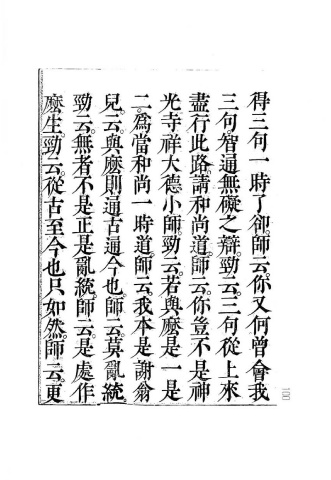 得三句一時了卻師云你又何曾會我
三句智通無礙之辯勁云三句從上來
盡行此路請和尚道師云你豈不是神
光寺祥大德小師勁云若與麼是一是
二為當和尚一時道師云我本是謝翁
兒云與麼則通古通今也師云莫亂統
勁云無者不是正是亂統師云是處作
麼生勁云從古至今也只如然師云更